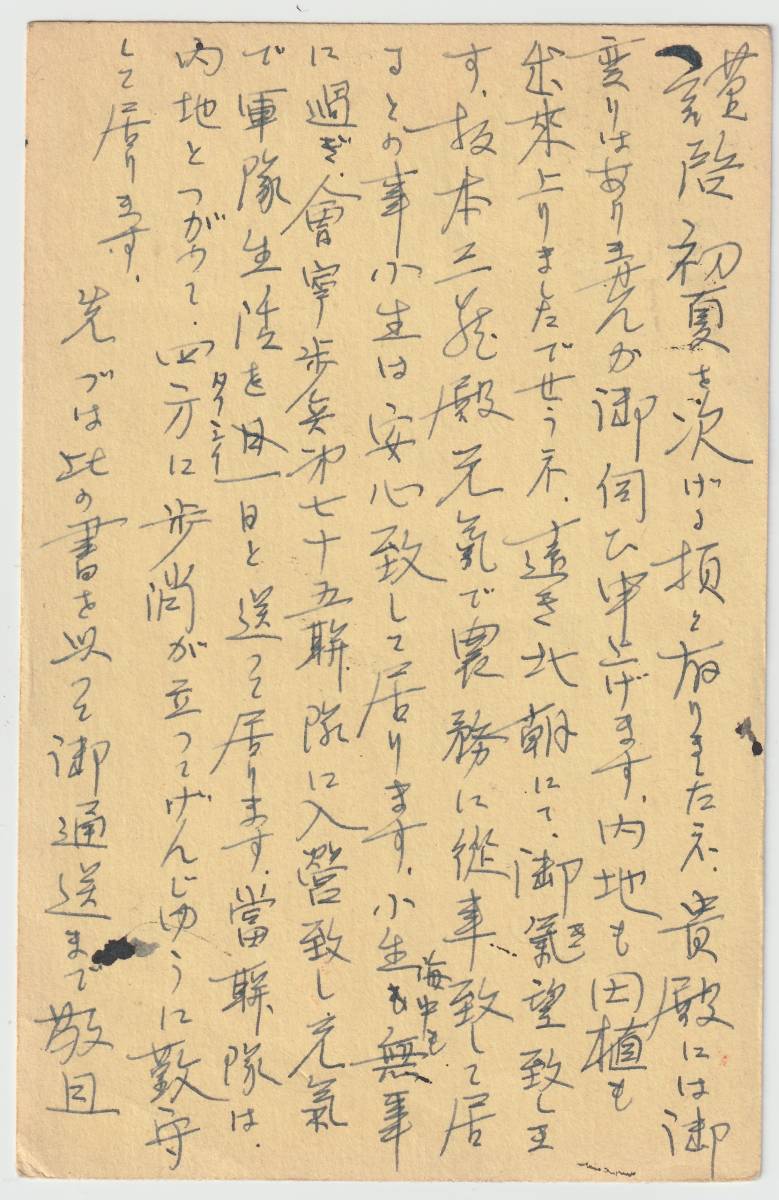 謹啓 初夏を次げる頃と有りましたネ、貴殿には御
変りはありませんか御伺ひ申上げます、内地も田植も
出來上りましたでせうネ、遠き北朝にて、御氣望致しま
す、坂本三 殿元氣で農務に從事致して居
るとの事小生は安心致して居ります、小生も海中も無事
に過ぎ、會寧歩兵第七十五聯隊に入營致し元氣
で軍隊生活を一日一日と送って居ります、當聯隊は、
内地とつがって、四方に歩哨が立ってげんじゆうに警守
して居ります、
先づは此の書を以って御通送まで敬具